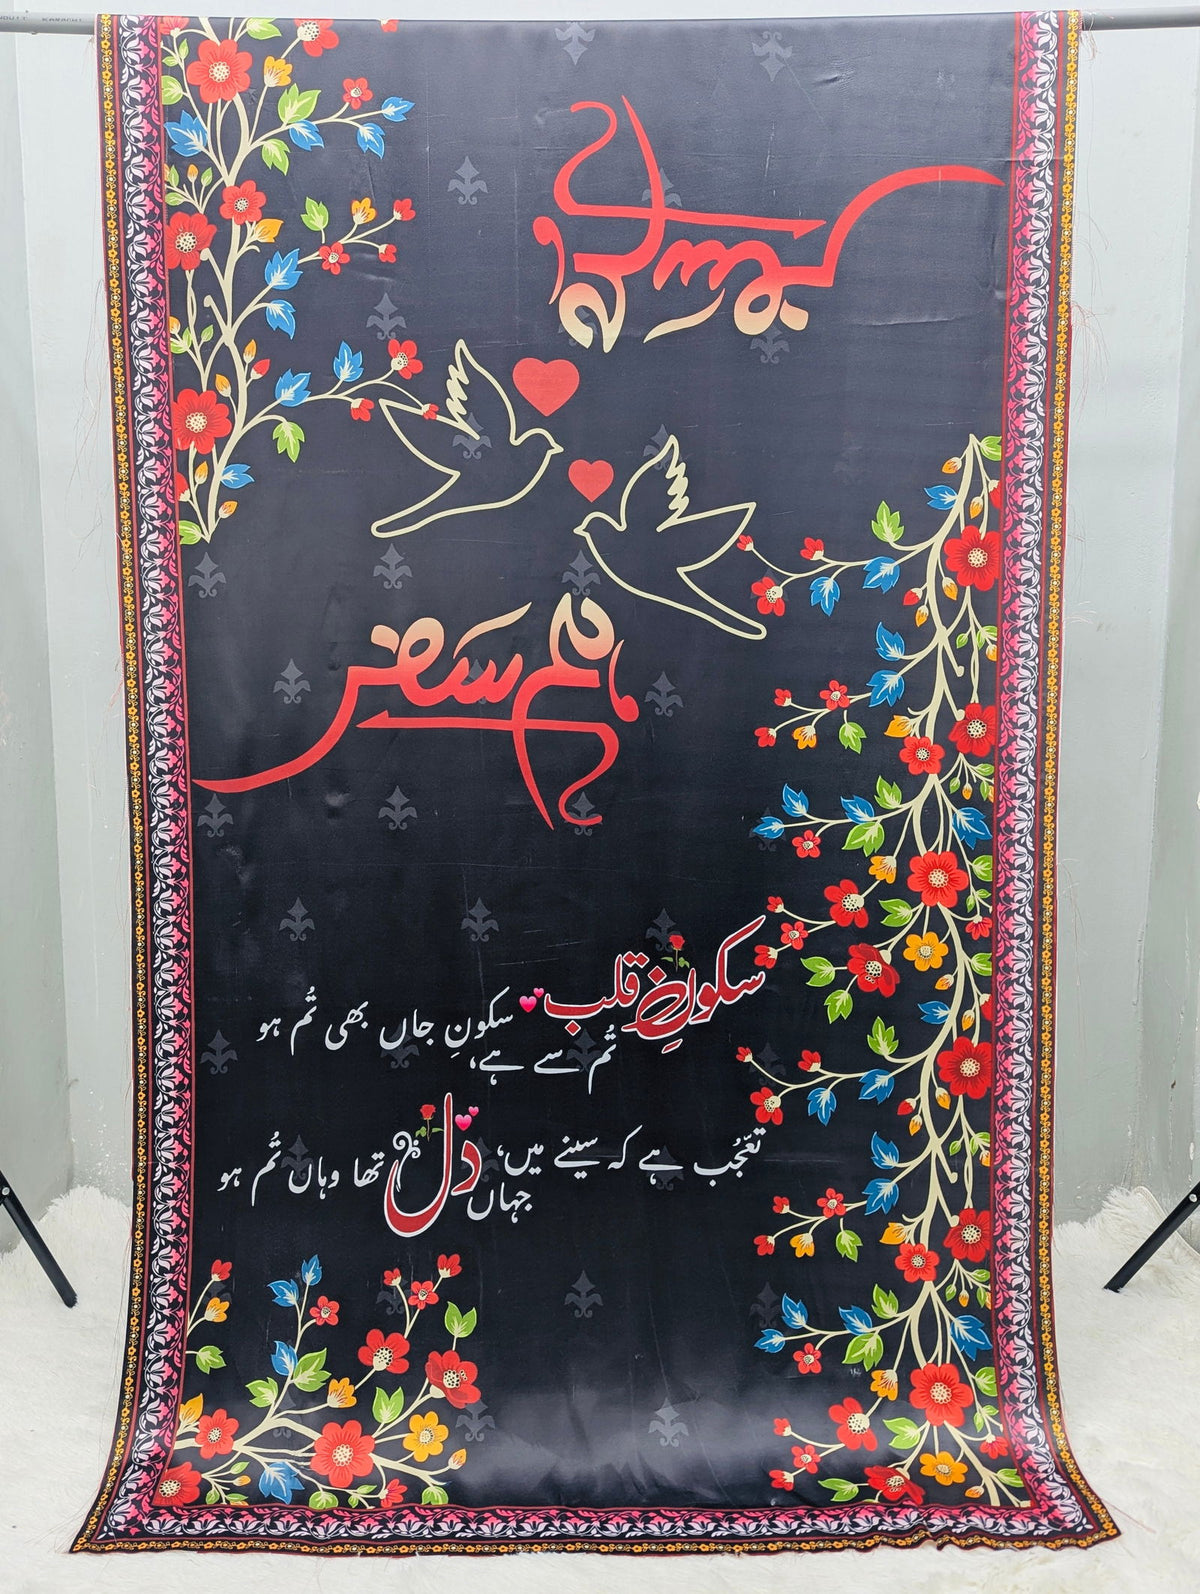 NDUIT KARACHI
ہم سفر
ہم سفر
سکونِ قلب تُم سے ہے، سکونِ جاں بھی تُم ہو
تعجُّب ہے کہ سینے میں، جہاں دل تھا وہاں تُم ہو